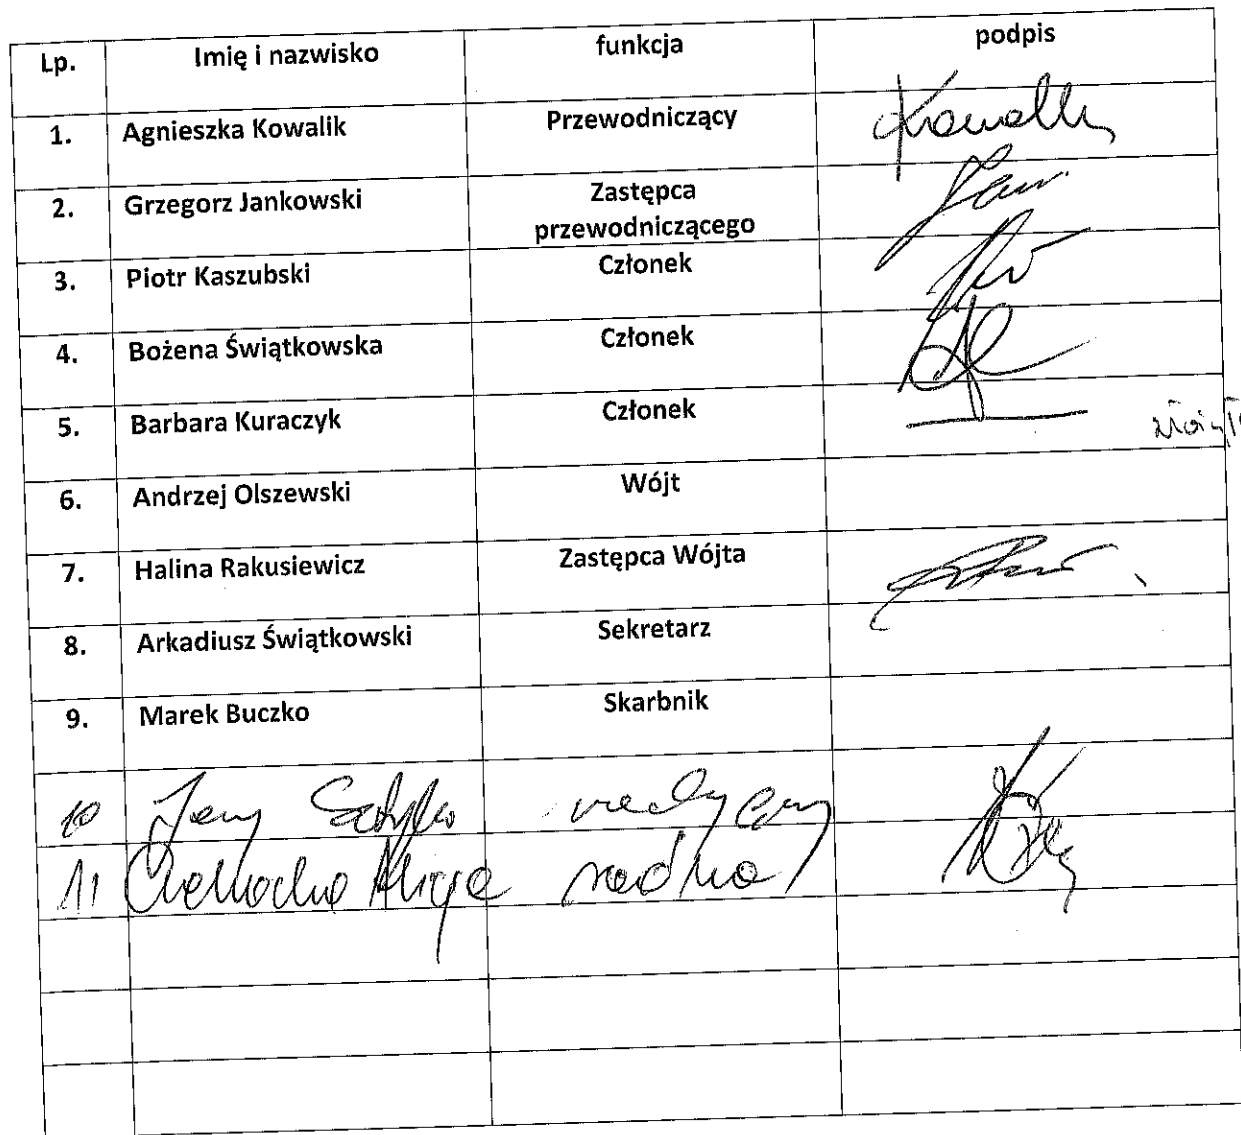 Lp. Imię i nazwisko funkcja podpis
1. Agnieszka Kowalik Przewodniczący Kowalik
2. Grzegorz Jankowski Zastępca
przewodniczącego
3. Piotr Kaszubski Członek
4. Bożena Świątkowska Członek
5. Barbara Kuraczyk Członek
6. Andrzej Olszewski Wójt
7. Halina Rakusiewicz Zastępca Wójta
8. Arkadiusz Świątkowski Sekretarz
9. Marek Buczko Skarbnik
10 Jerzy
11 Alicja radna